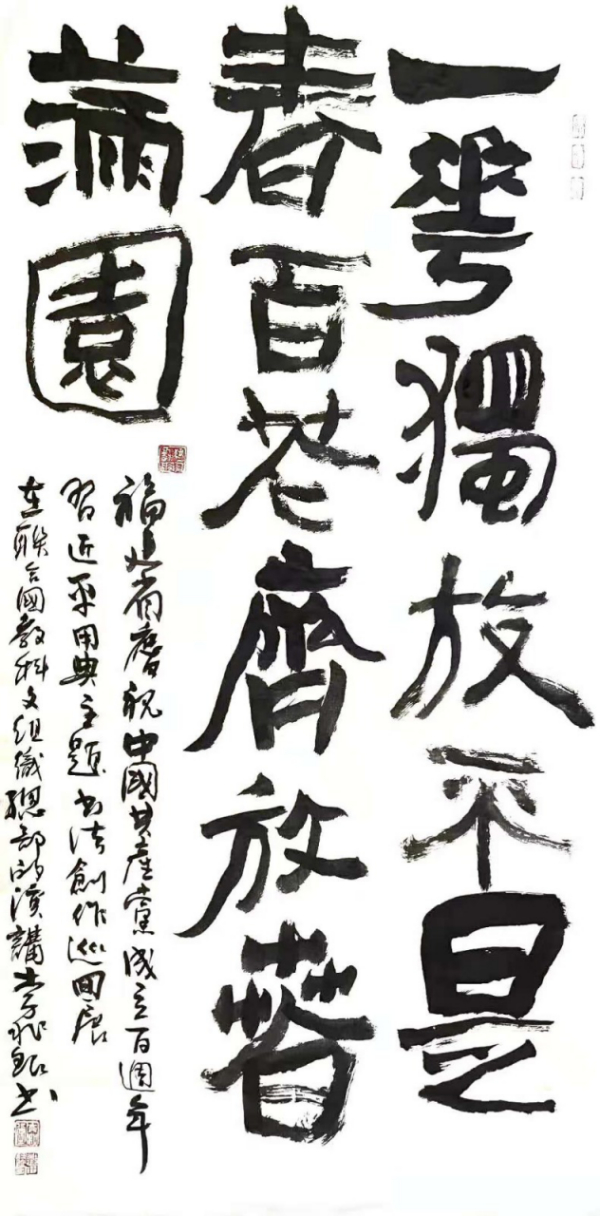 一華獨放不是
春百花齊放春
滿園
福建省慶祝中國共產黨成立百週年
習近平用典主題書法創作巡回展
在聯合國教科文組織總部的演講 李 書